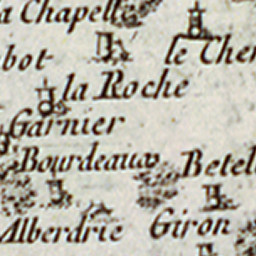 a Chapelle
bot
le Cher
la Roche
Garnier
Bourdeaux
Betel
Alberdrie
Giron